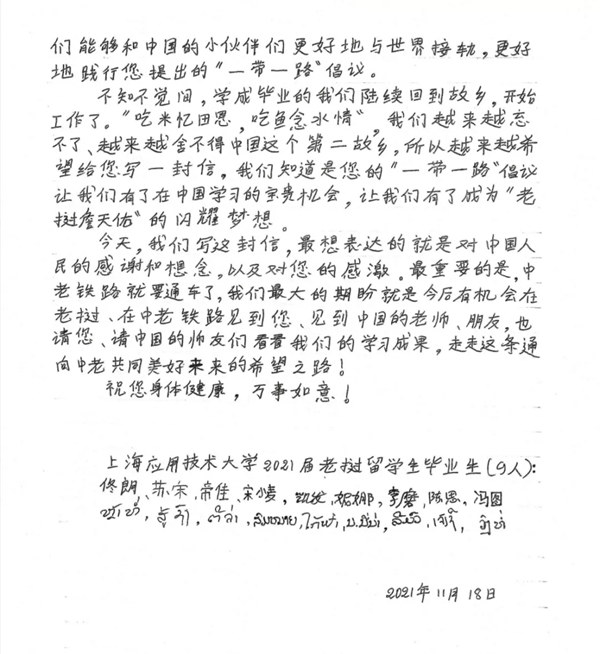 们能够和中国的小伙伴们更好地与世界接轨，更好
地践行您提出的“一带一路”倡议。
不知不觉间，学成毕业的我们陆续回到故乡，开始
工作了。“吃米忆田恩，吃鱼念水情”，我们越来越忘
不了、越来越舍不得中国这个第二故乡，所以越来越希
望给您写一封信，我们知道是您的“一带一路”倡议
让我们有了在中国学习的宝贵机会，让我们有了成为“老
挝詹天佑”的闪耀梦想。
今天，我们写这封信，最想表达的就是对中国人
民的感谢和想念，以及对您的感激。最重要的是，中
老铁路就要通车了，我们最大的期盼就是今后有机会在
老挝、在中老铁路见到您、见到中国的老师、朋友，也
请您、请中国的师友们看看我们的学习成果，走走这条通
向中老共同美好未来的希望之路！
祝您身体健康，万事如意！
上海应用技术大学2021届老挝留学生毕业生(9人)：
佟朗、苏宋、帝佳、宋小菱，凯欣，妮娜，李磨，陈思，冯图
2021年11月18日